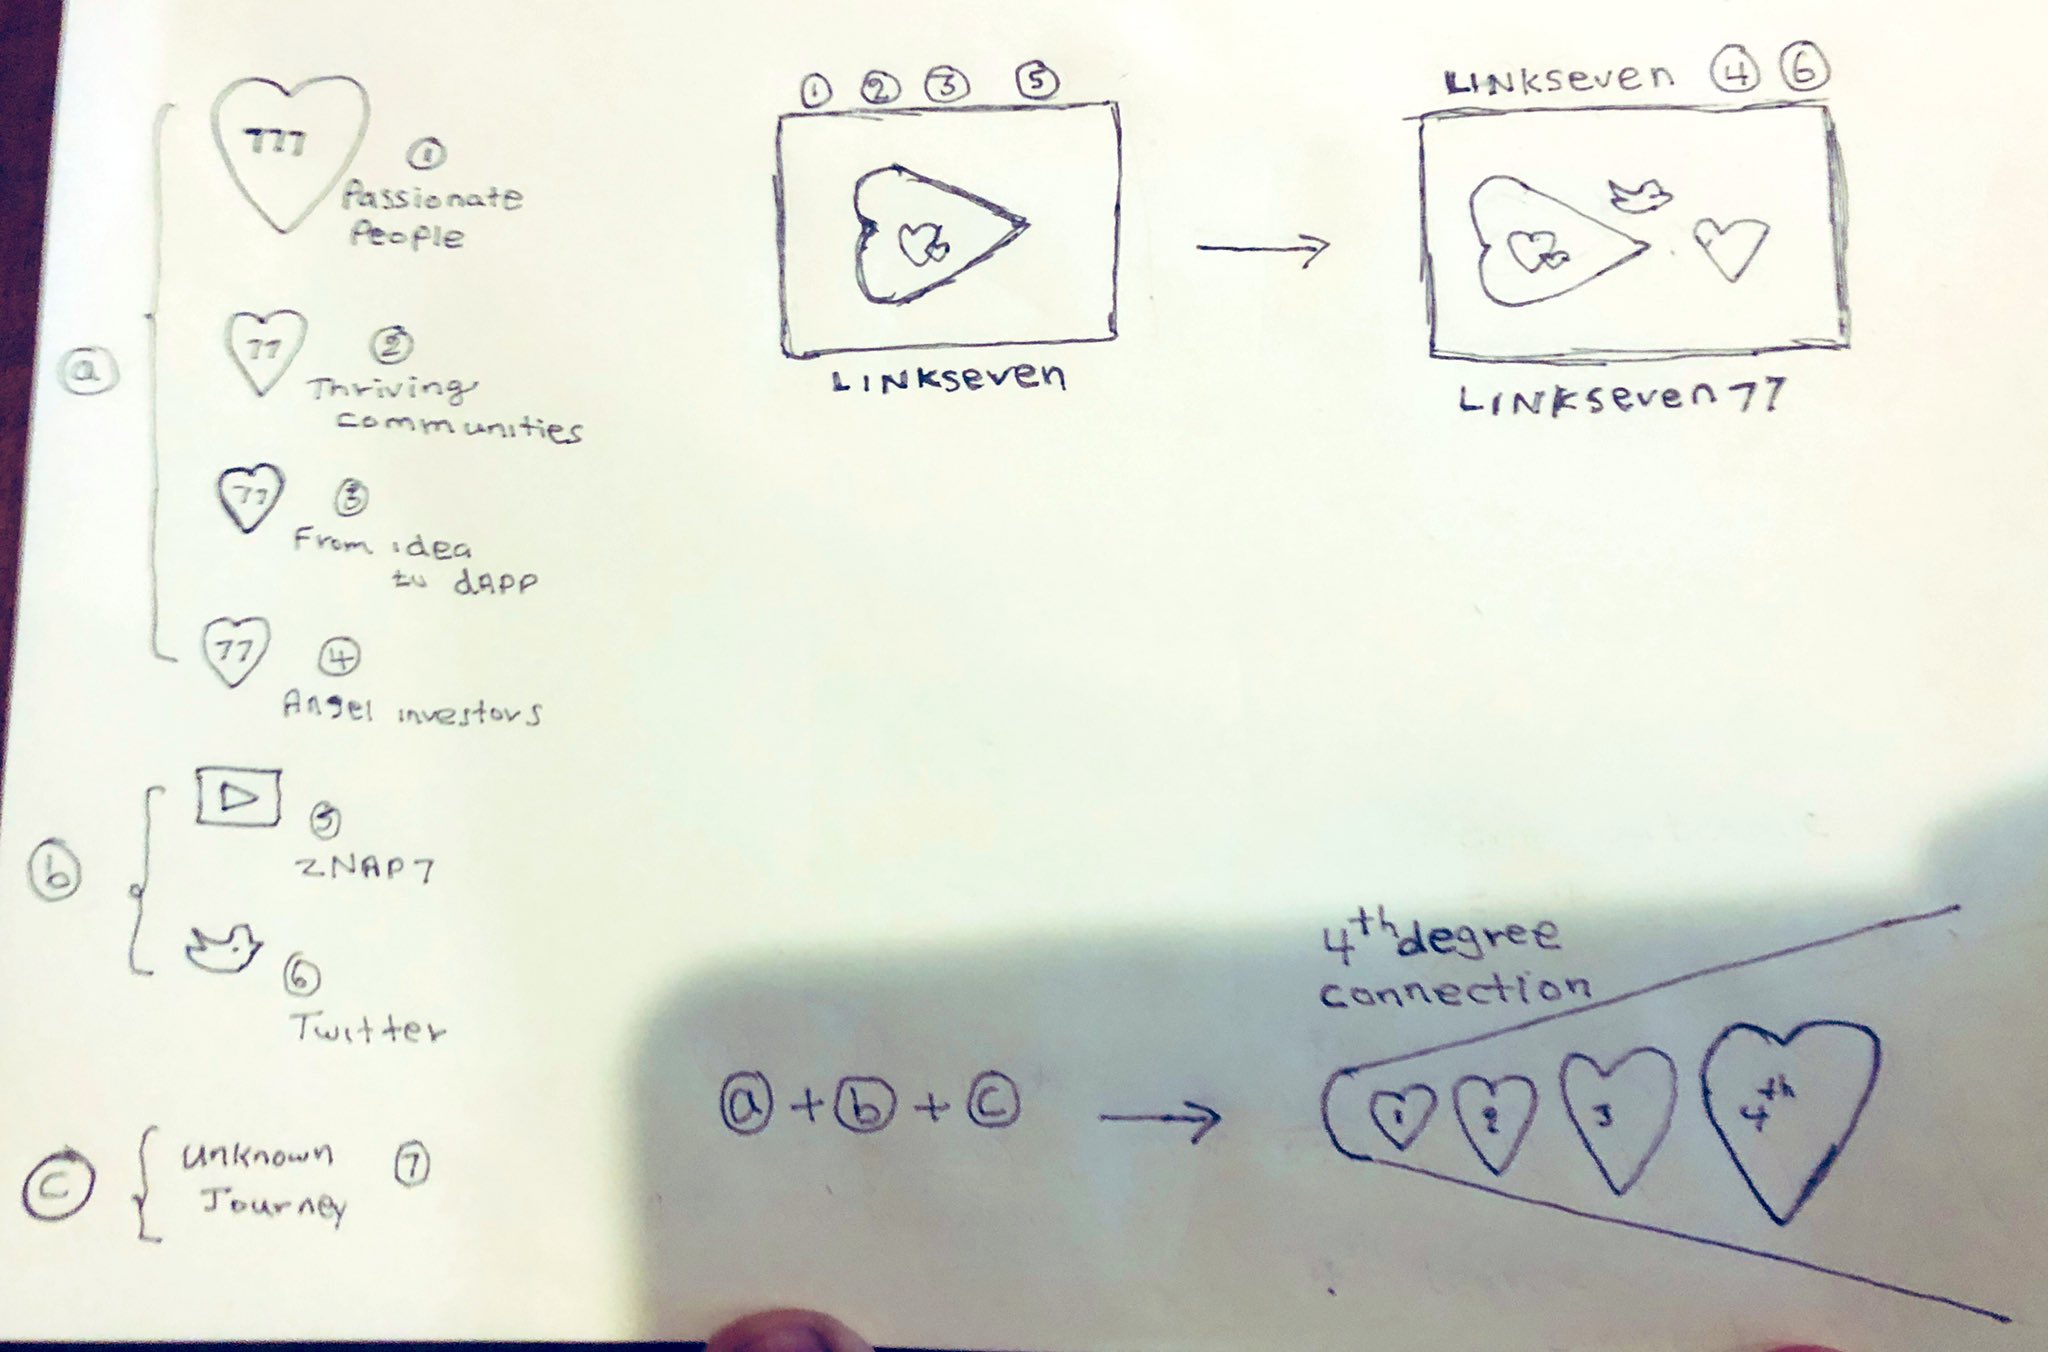 777
①
Passionate
People
ⓐ
77
②
Thriving
communities
77
③
From idea
to dAPP
77
④
Angel investors
ⓑ
⑤
ZNAP7
⑥
Twitter
ⓒ
Unknown ⑦
Journey
① ② ③ ⑤
LINKseven
LINKseven ④ ⑥
LINKseven 77
ⓐ + ⓑ + ⓒ
4th degree
connection
1 2 3 4th